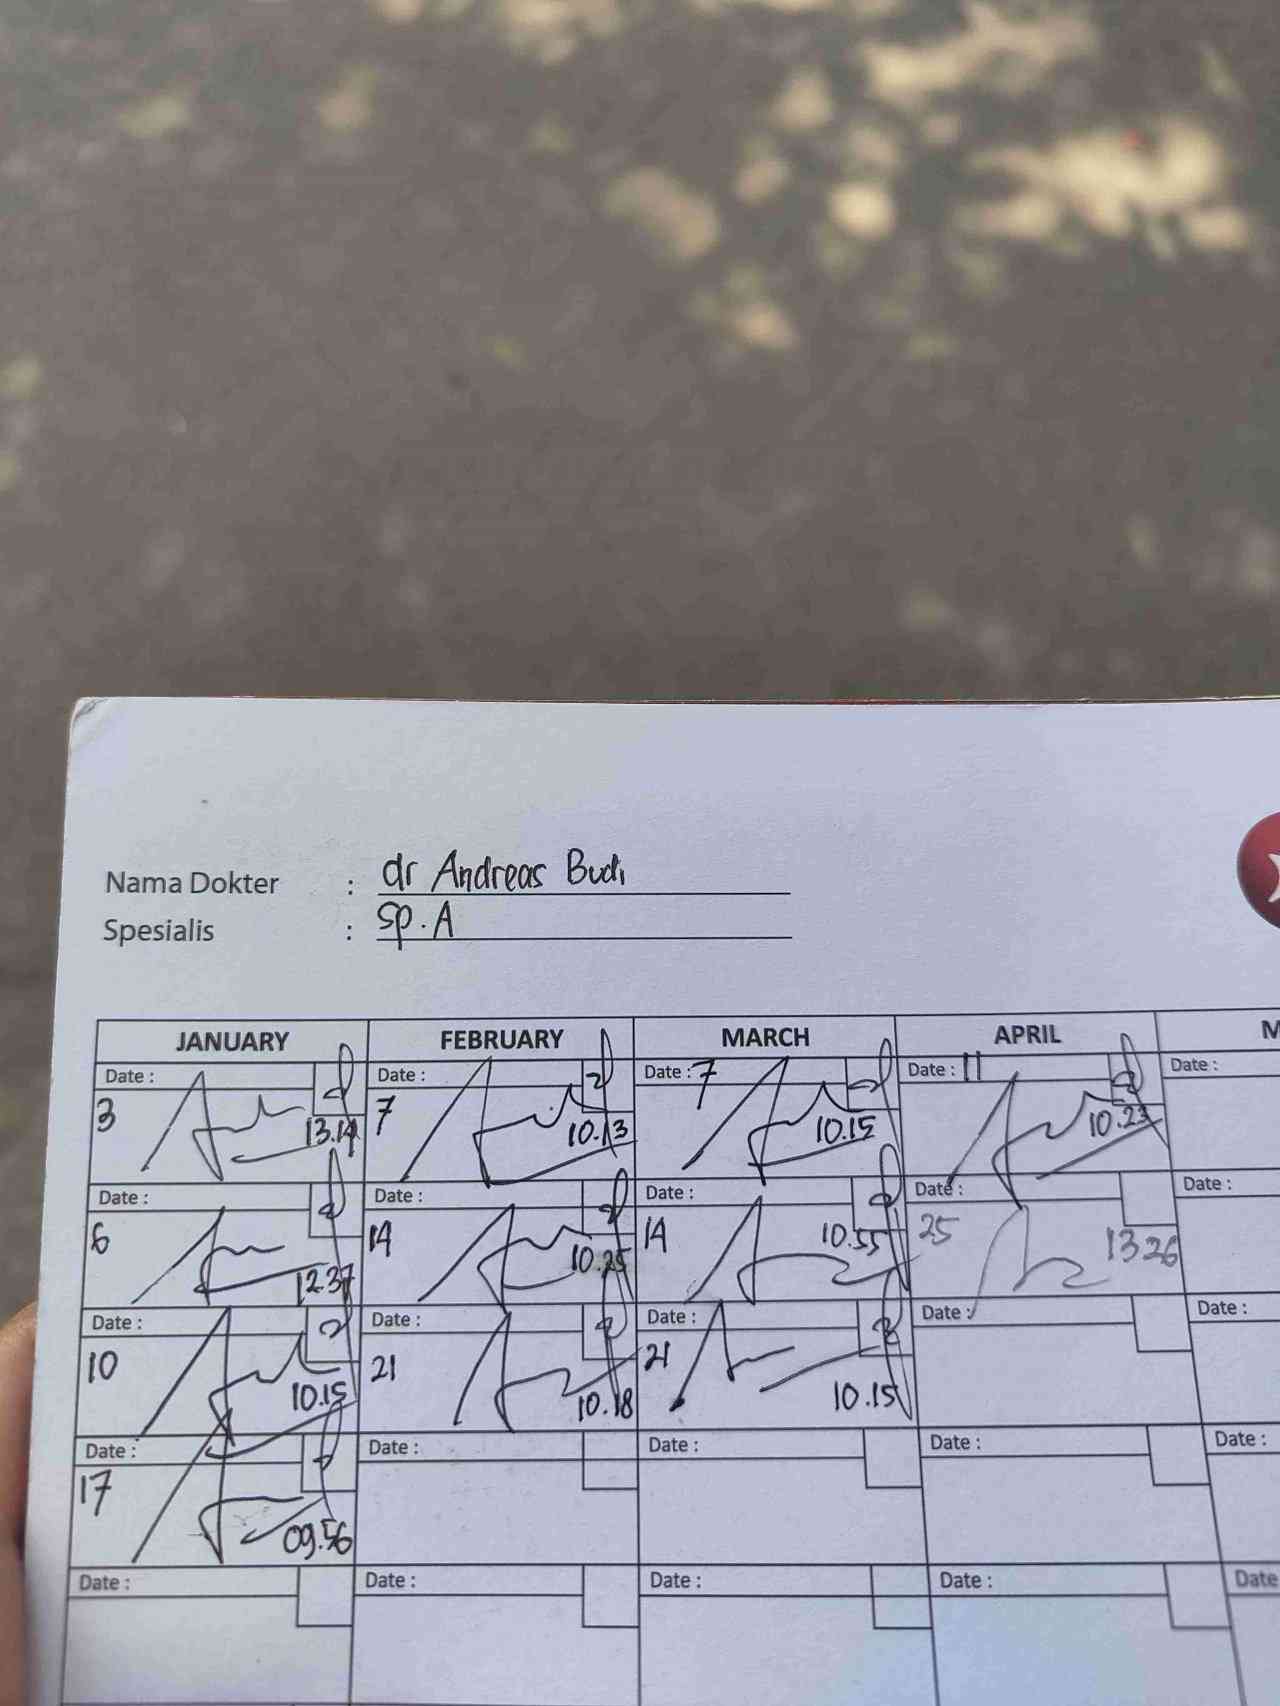 Nama Dokter : dr Andreas Budi
Spesialis : Sp. A
JANUARY FEBRUARY MARCH APRIL M
Date : Date : Date : 7 Date : 11 Date :
3 13.14 7 10.13 10.15 10.23
Date : Date : Date : Date : Date :
6 12.37 14 10.25 14 10.55 25 13 26
Date : Date : Date : Date : Date :
10 10.15 21 10.18 21 10.15
Date : Date : Date : Date : Date :
17 09.56
Date : Date : Date : Date : Date